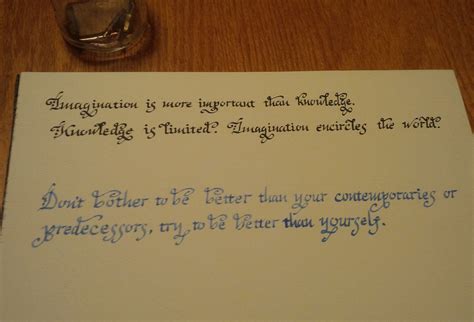 Imagination is more important than knowledge.
Knowledge is limited. Imagination encircles the world.
Don't bother to be better than your contemporaries or
predecessors, try to be better than yourself.